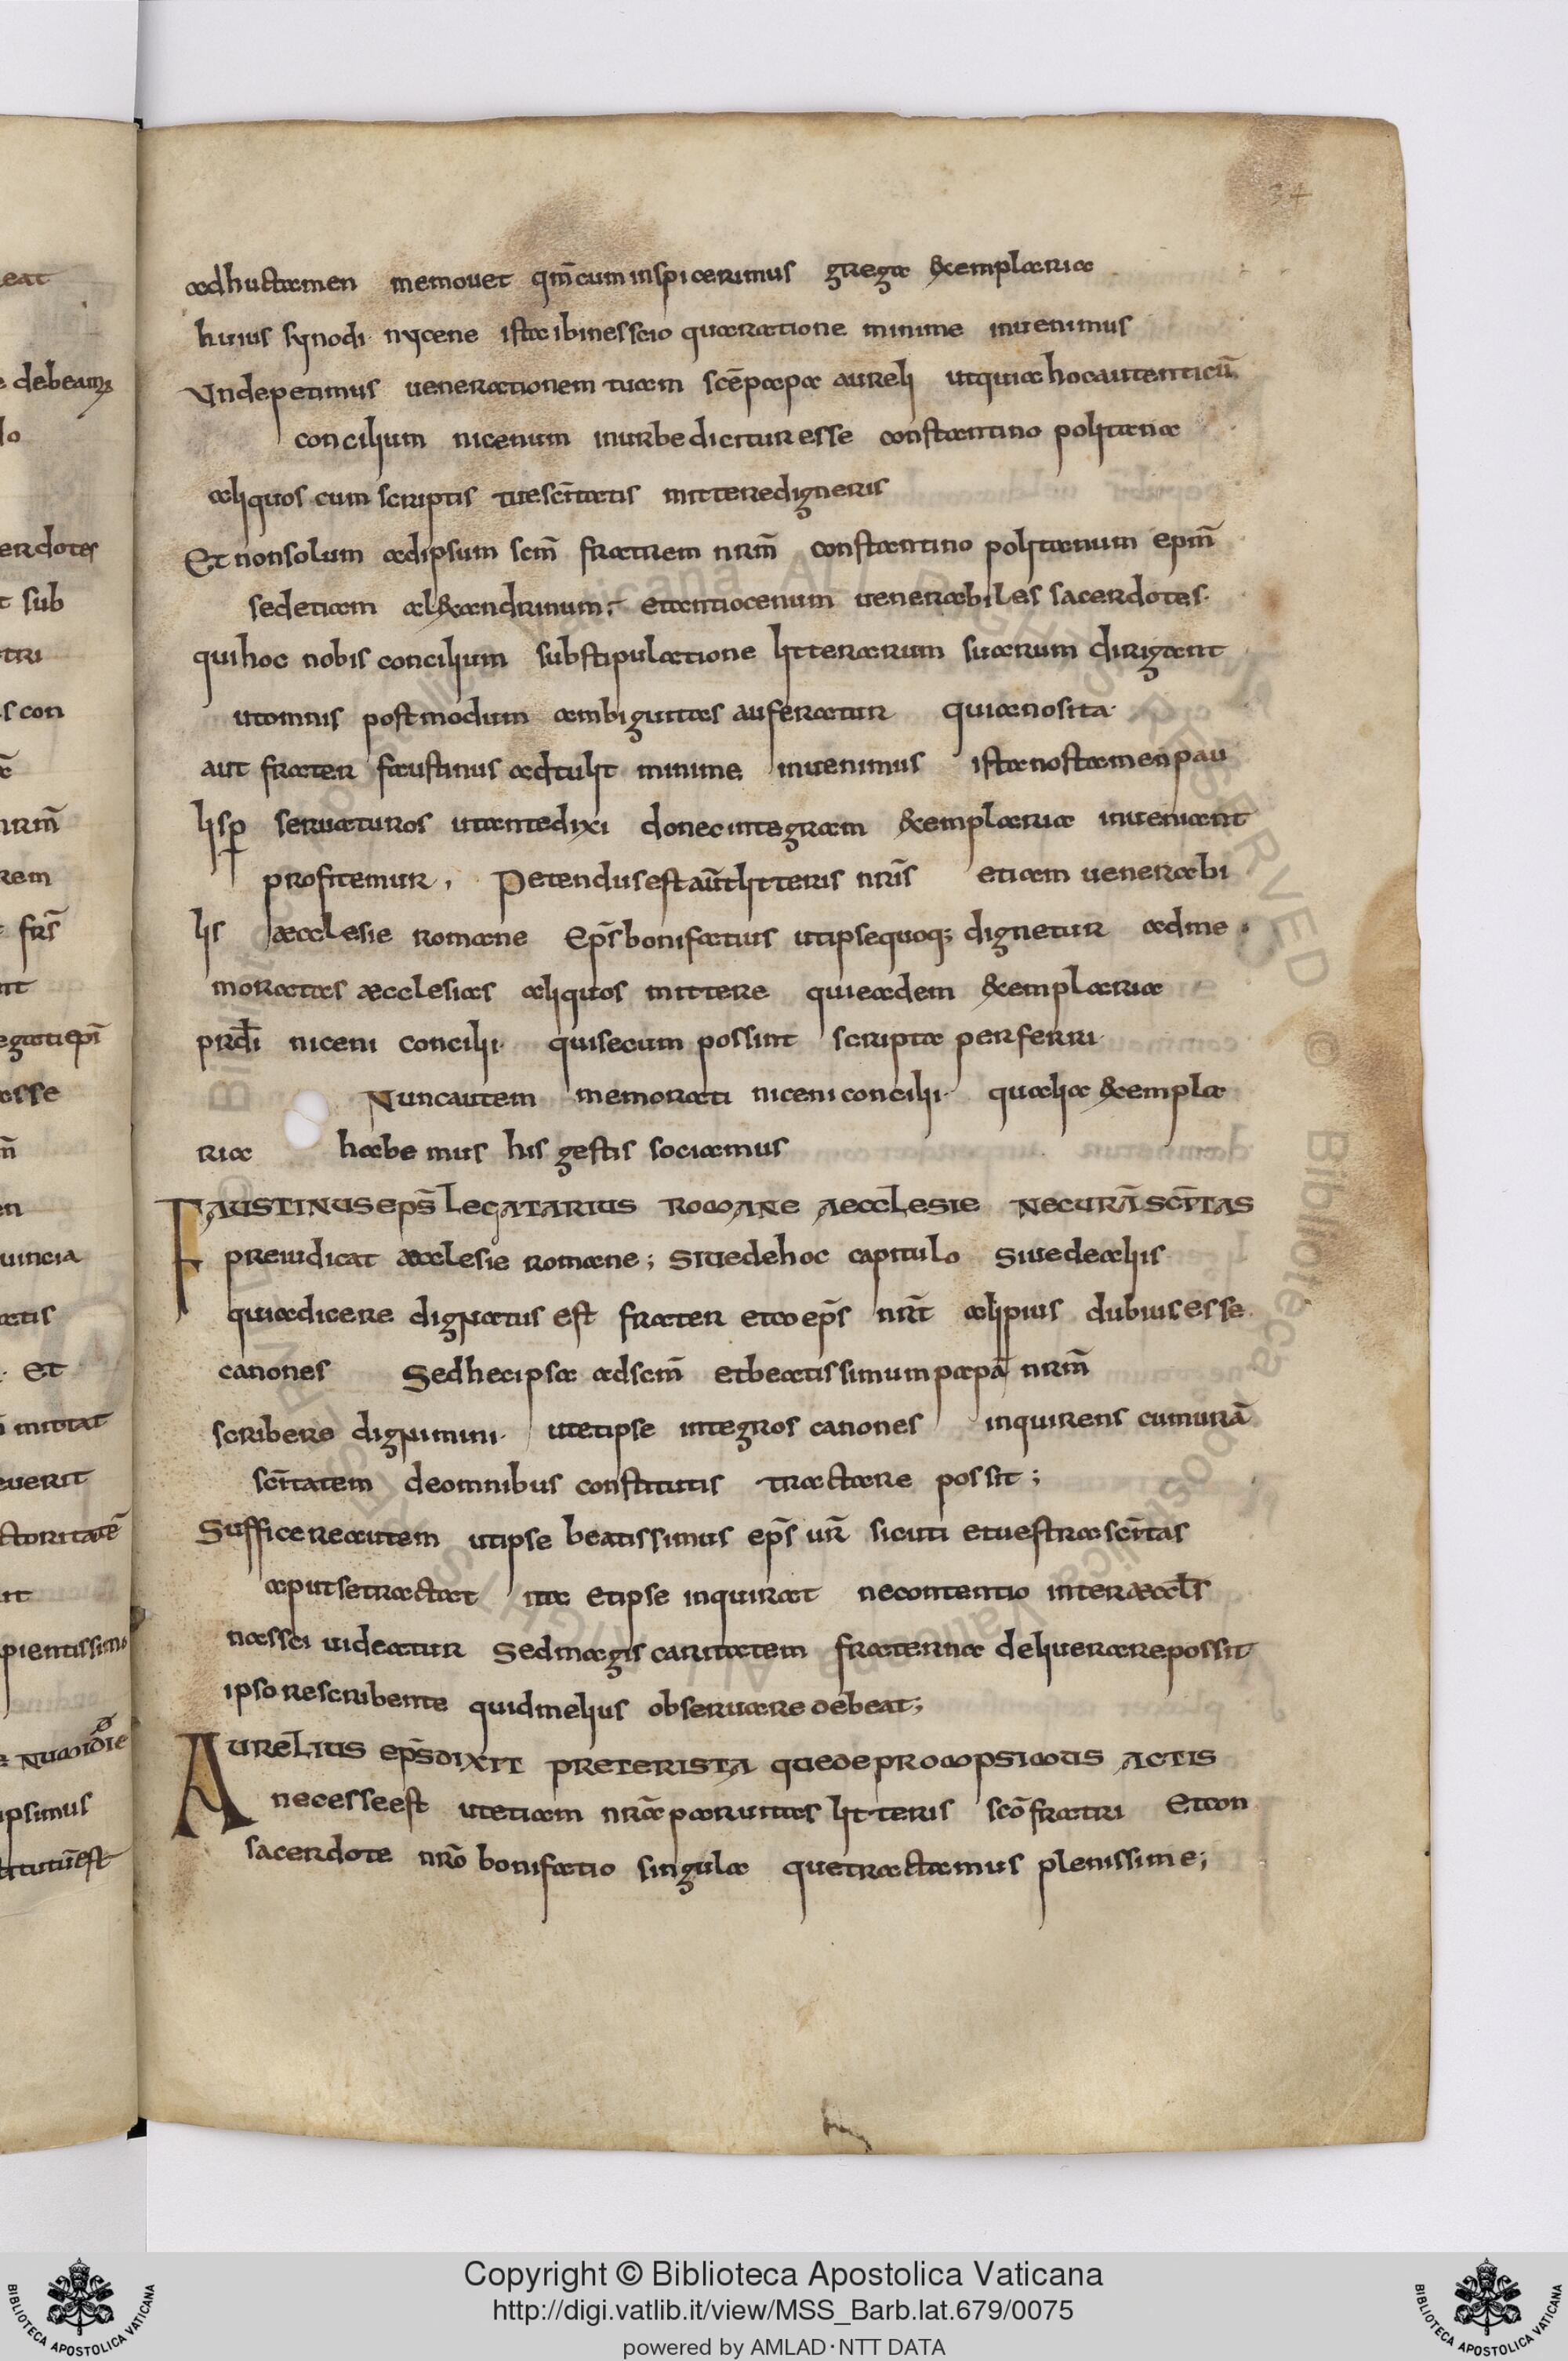 34
adhuctamen memouet qm̄cuminspicerimus grega &emplaria
huius synodi nycene ista ibinesscio quaratione minime inuenimus
Vndepetimus uenerationem tuam scēpapa aureli utquiahocautenticū
concilium nicenum inurbedicituresse constantino politana
aliquos cum scriptis tuesc̄itatis mitteredigneris
Et nonsolum adipsum scm̄ fratrem nrm̄ constantino politanum epm̄
sedetiam al&andrinum; etantiocenum uenerabiles sacerdotes.
quihoc nobis concilium substipulatione litterarum suarum dirigant
utomnis postmodum ambiguitas auferatur quianosita
aut frater faustinus adtulit minime inuenimus istanostamenpau
lisp seruaturos utantedixi donecintegram &emplaria inueniant
profitemur, Petendusestaūtlitteris nrīs etiam uenerabi
lis aecclesie romane Ep̄sbonifatius utipsequoq; dignetur adme
moratas aecclesias aliquos mittere quieadem &emplaria
prdi̅ niceni concilii quisecum possint scripta perferri
Nuncautem memorati niceniconcilii quaalia &empla
ria habemus his gestis sociamus
FAUSTINUSep̄s LEGATARIUS ROMANE AECCLESIE NECURĀSC̄ITAS
preiudicat aecclesie romane; siuedehoc capitulo siuedealiis
quiadicere dignatus est frater etcoep̄s nr̄t alipius dubiusesse
canones Sedhecipsa adscm̄ etbeatissimumpapā nrm̄
scribere dignimini utetipse integros canones inquirens cumurā
sc̄itatem deomnibus constitutis tractare possit;
Sufficereautem utipse beatissimus ep̄s ur̄ sicuti etuestrasc̄itas
aputsetractat ita etipse inquirat necontentio interaeccl̄s
nassci uideatur sedmagis caritatem fraterna deliuerarepossit
ipsorescribente quidmelius obseruaredebeat;
AURELIUS ep̄sDIXIT PRETERISTA QUEDEPROMPSIMUS ACTIS
necesseest utetiam nrāparuitas litteris scōfratri Etcon
sacerdote nrō bonifatio singula quetractamus plenissime;
eat
e debeamus
lo
erdotes
t sub
tri
s con
nrm̄
rem
frs̄
nt
esse
en
uincia
atis
et
mittat
euerit
ctoritatē
it
pientissimo
NUMIDIE
ipsimus
titutūest
Copyright © Biblioteca Apostolica Vaticana
http://digi.vatlib.it/view/MSS_Barb.lat.679/0075
powered by AMLAD·NTT DATA
BIBLIOTECA APOSTOLICA VATICANA
BIBLIOTECA APOSTOLICA VATICANA